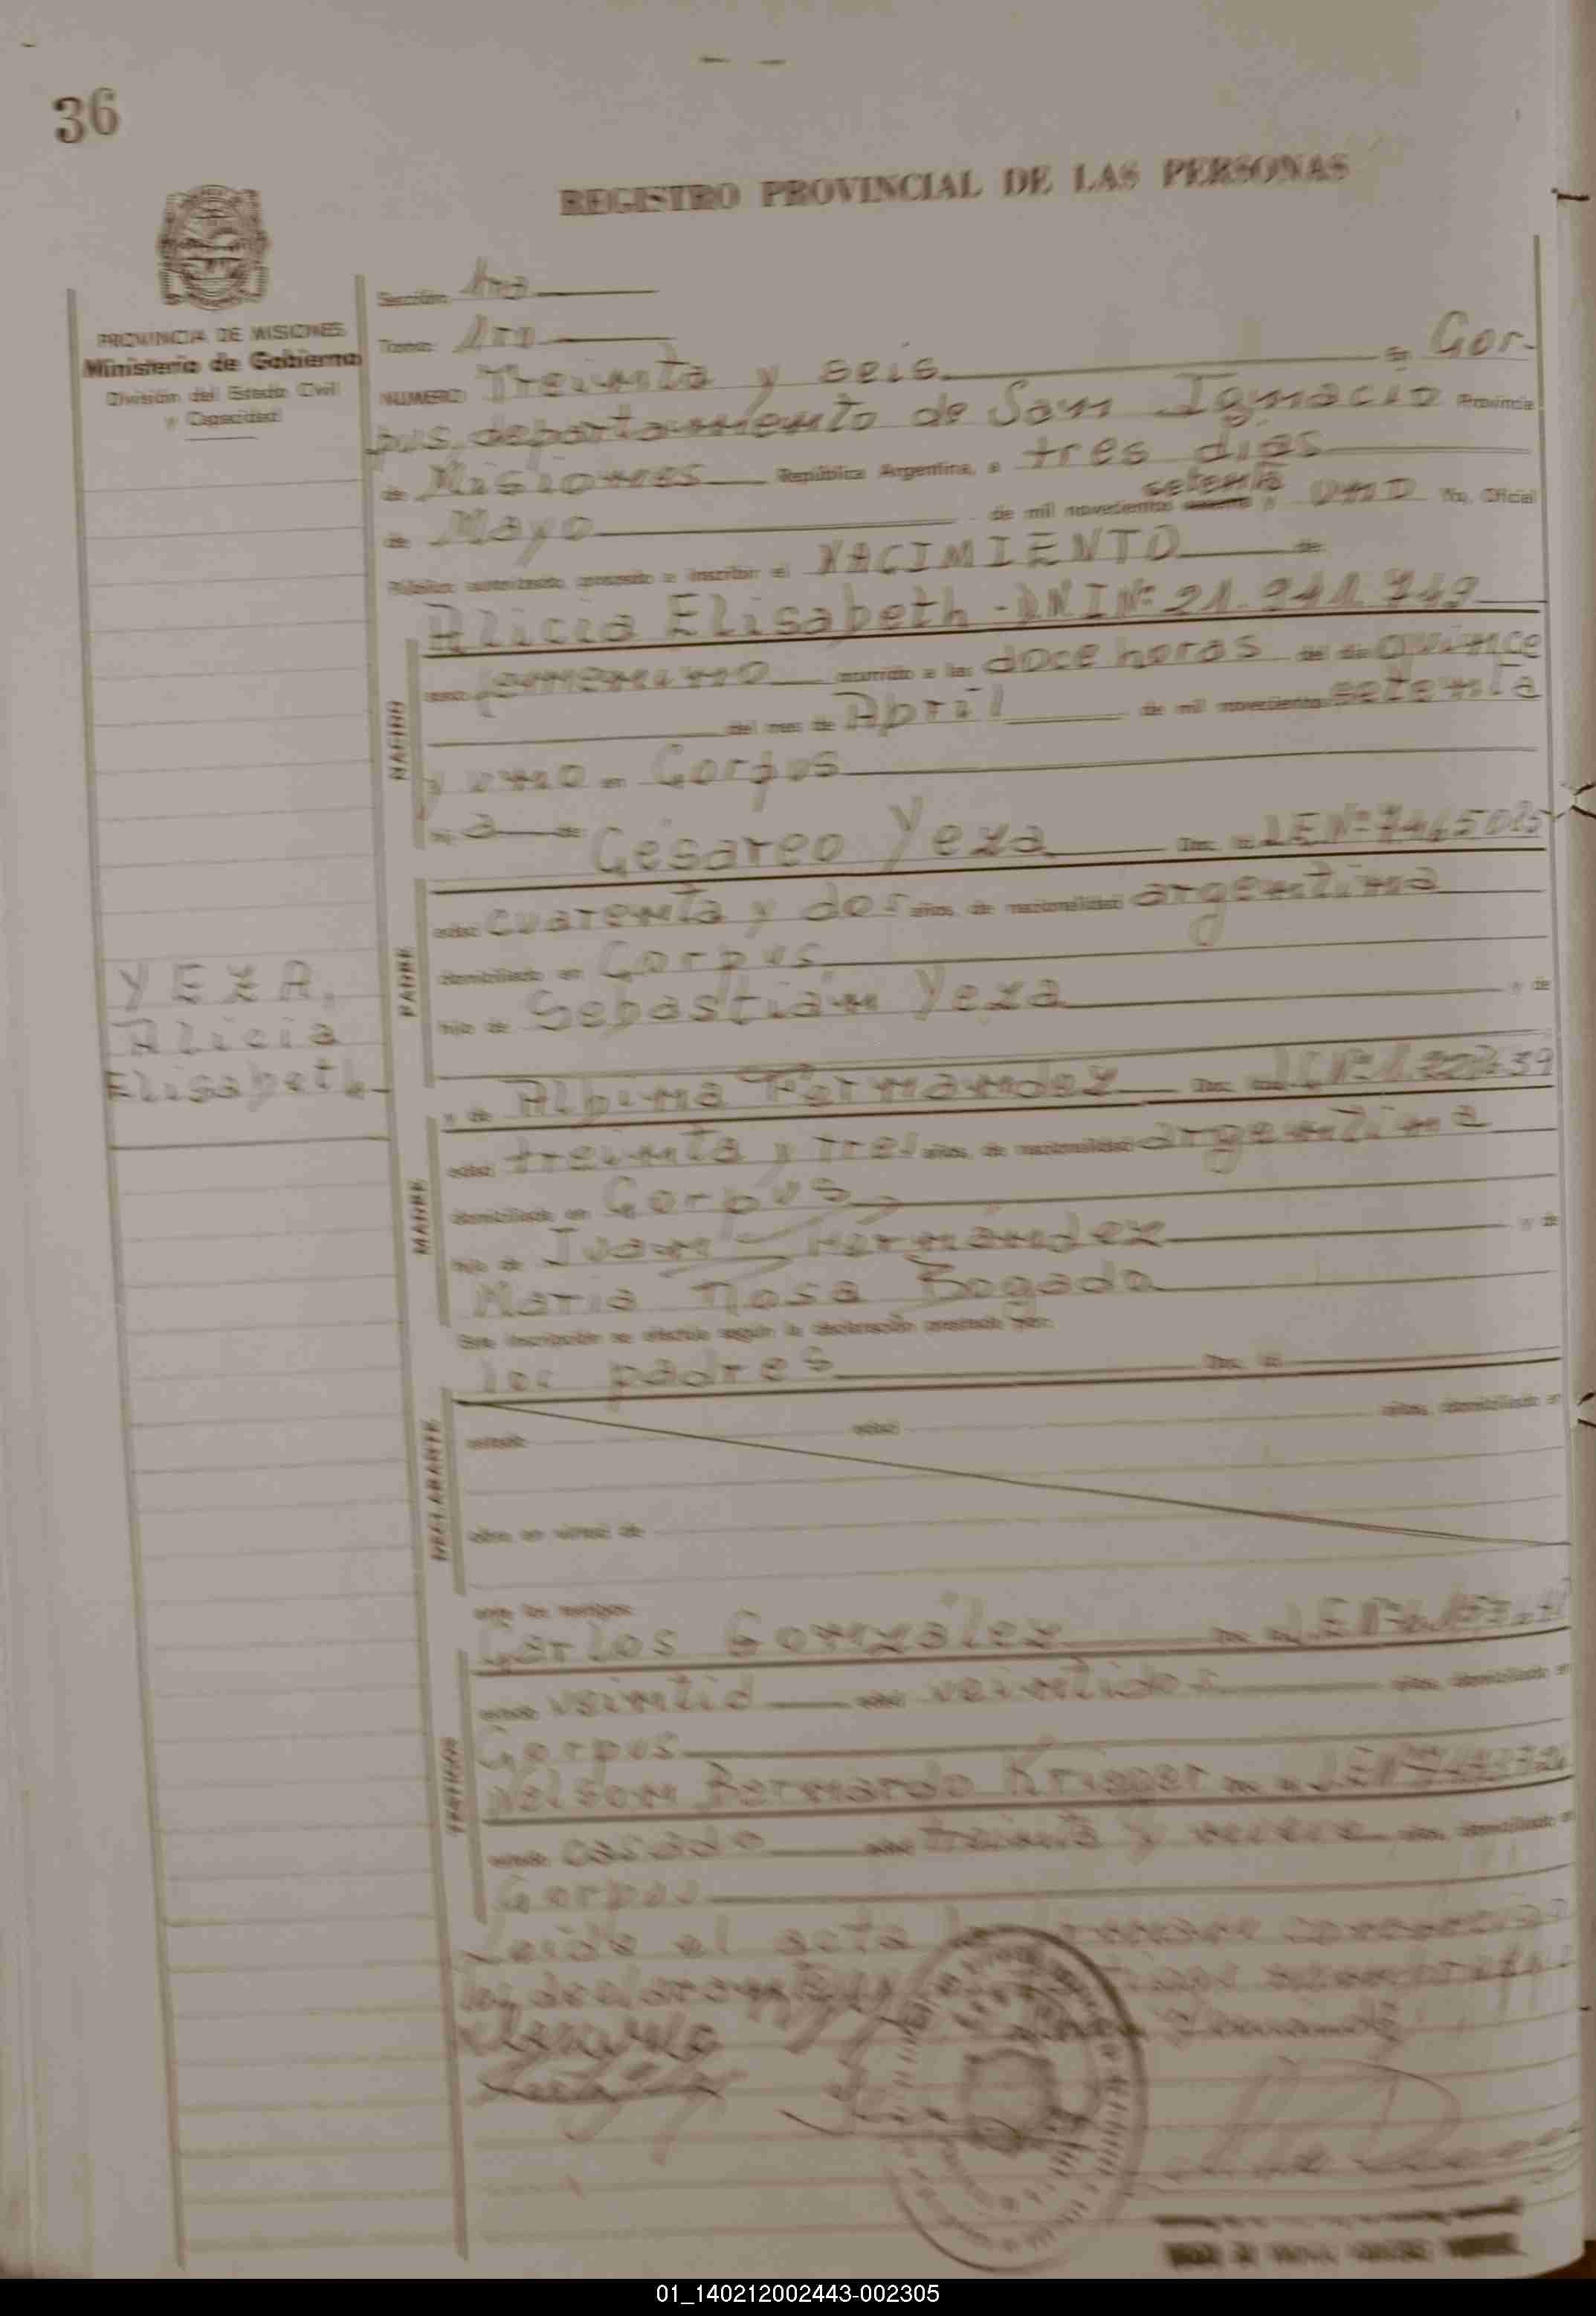 36
REGISTRO PROVINCIAL DE LAS PERSONAS
PROVINCIA DE MISIONES
Ministerio de Gobierno
División del Estado Civil
y Capacidad
Sección 1ra
Tomo: 1ro
NUMERO Treinta y seis en Cor-
pus, departamento de San Ignacio Provincia
de Misiones República Argentina, a tres días
setenta
de Mayo de mil novecientos y uno Yo, Oficial
Público autorizado, procedo a inscribir el NACIMIENTO de
Alicia Elisabeth - DNI Nº 21.941.749
NACIDO
sexo femenino ocurrido a las doce horas del día quince
del mes de Abril de mil novecientos setenta
y uno en Corpus
hija de Cesareo Yeza Doc. Id. LE Nº
PADRE
edad cuarenta y dos años, de nacionalidad argentina
domiciliado en Corpus
hijo de Sebastián Yeza y de
YEZA,
Alicia
Elisabeth
y de Albina Fernandez Doc. Id.
MADRE
edad treinta y tres años, de nacionalidad argentina
domiciliada en Corpus
hija de Juan Fernández y de
Maria Rosa Bogado
Esta inscripción se efectúa según la declaración prestada por:
los padres Doc. Id.
DECLARANTE
estado edad años, domiciliado en
obra en virtud de
ante los testigos:
Carlos González
TESTIGOS
edad veintidos años, domiciliado en
Corpus
Nelson Bernardo Krieger
estado casado edad treinta y nueve años, domiciliado en
Corpus
Leida el acta
los declarantes
01_140212002443-002305